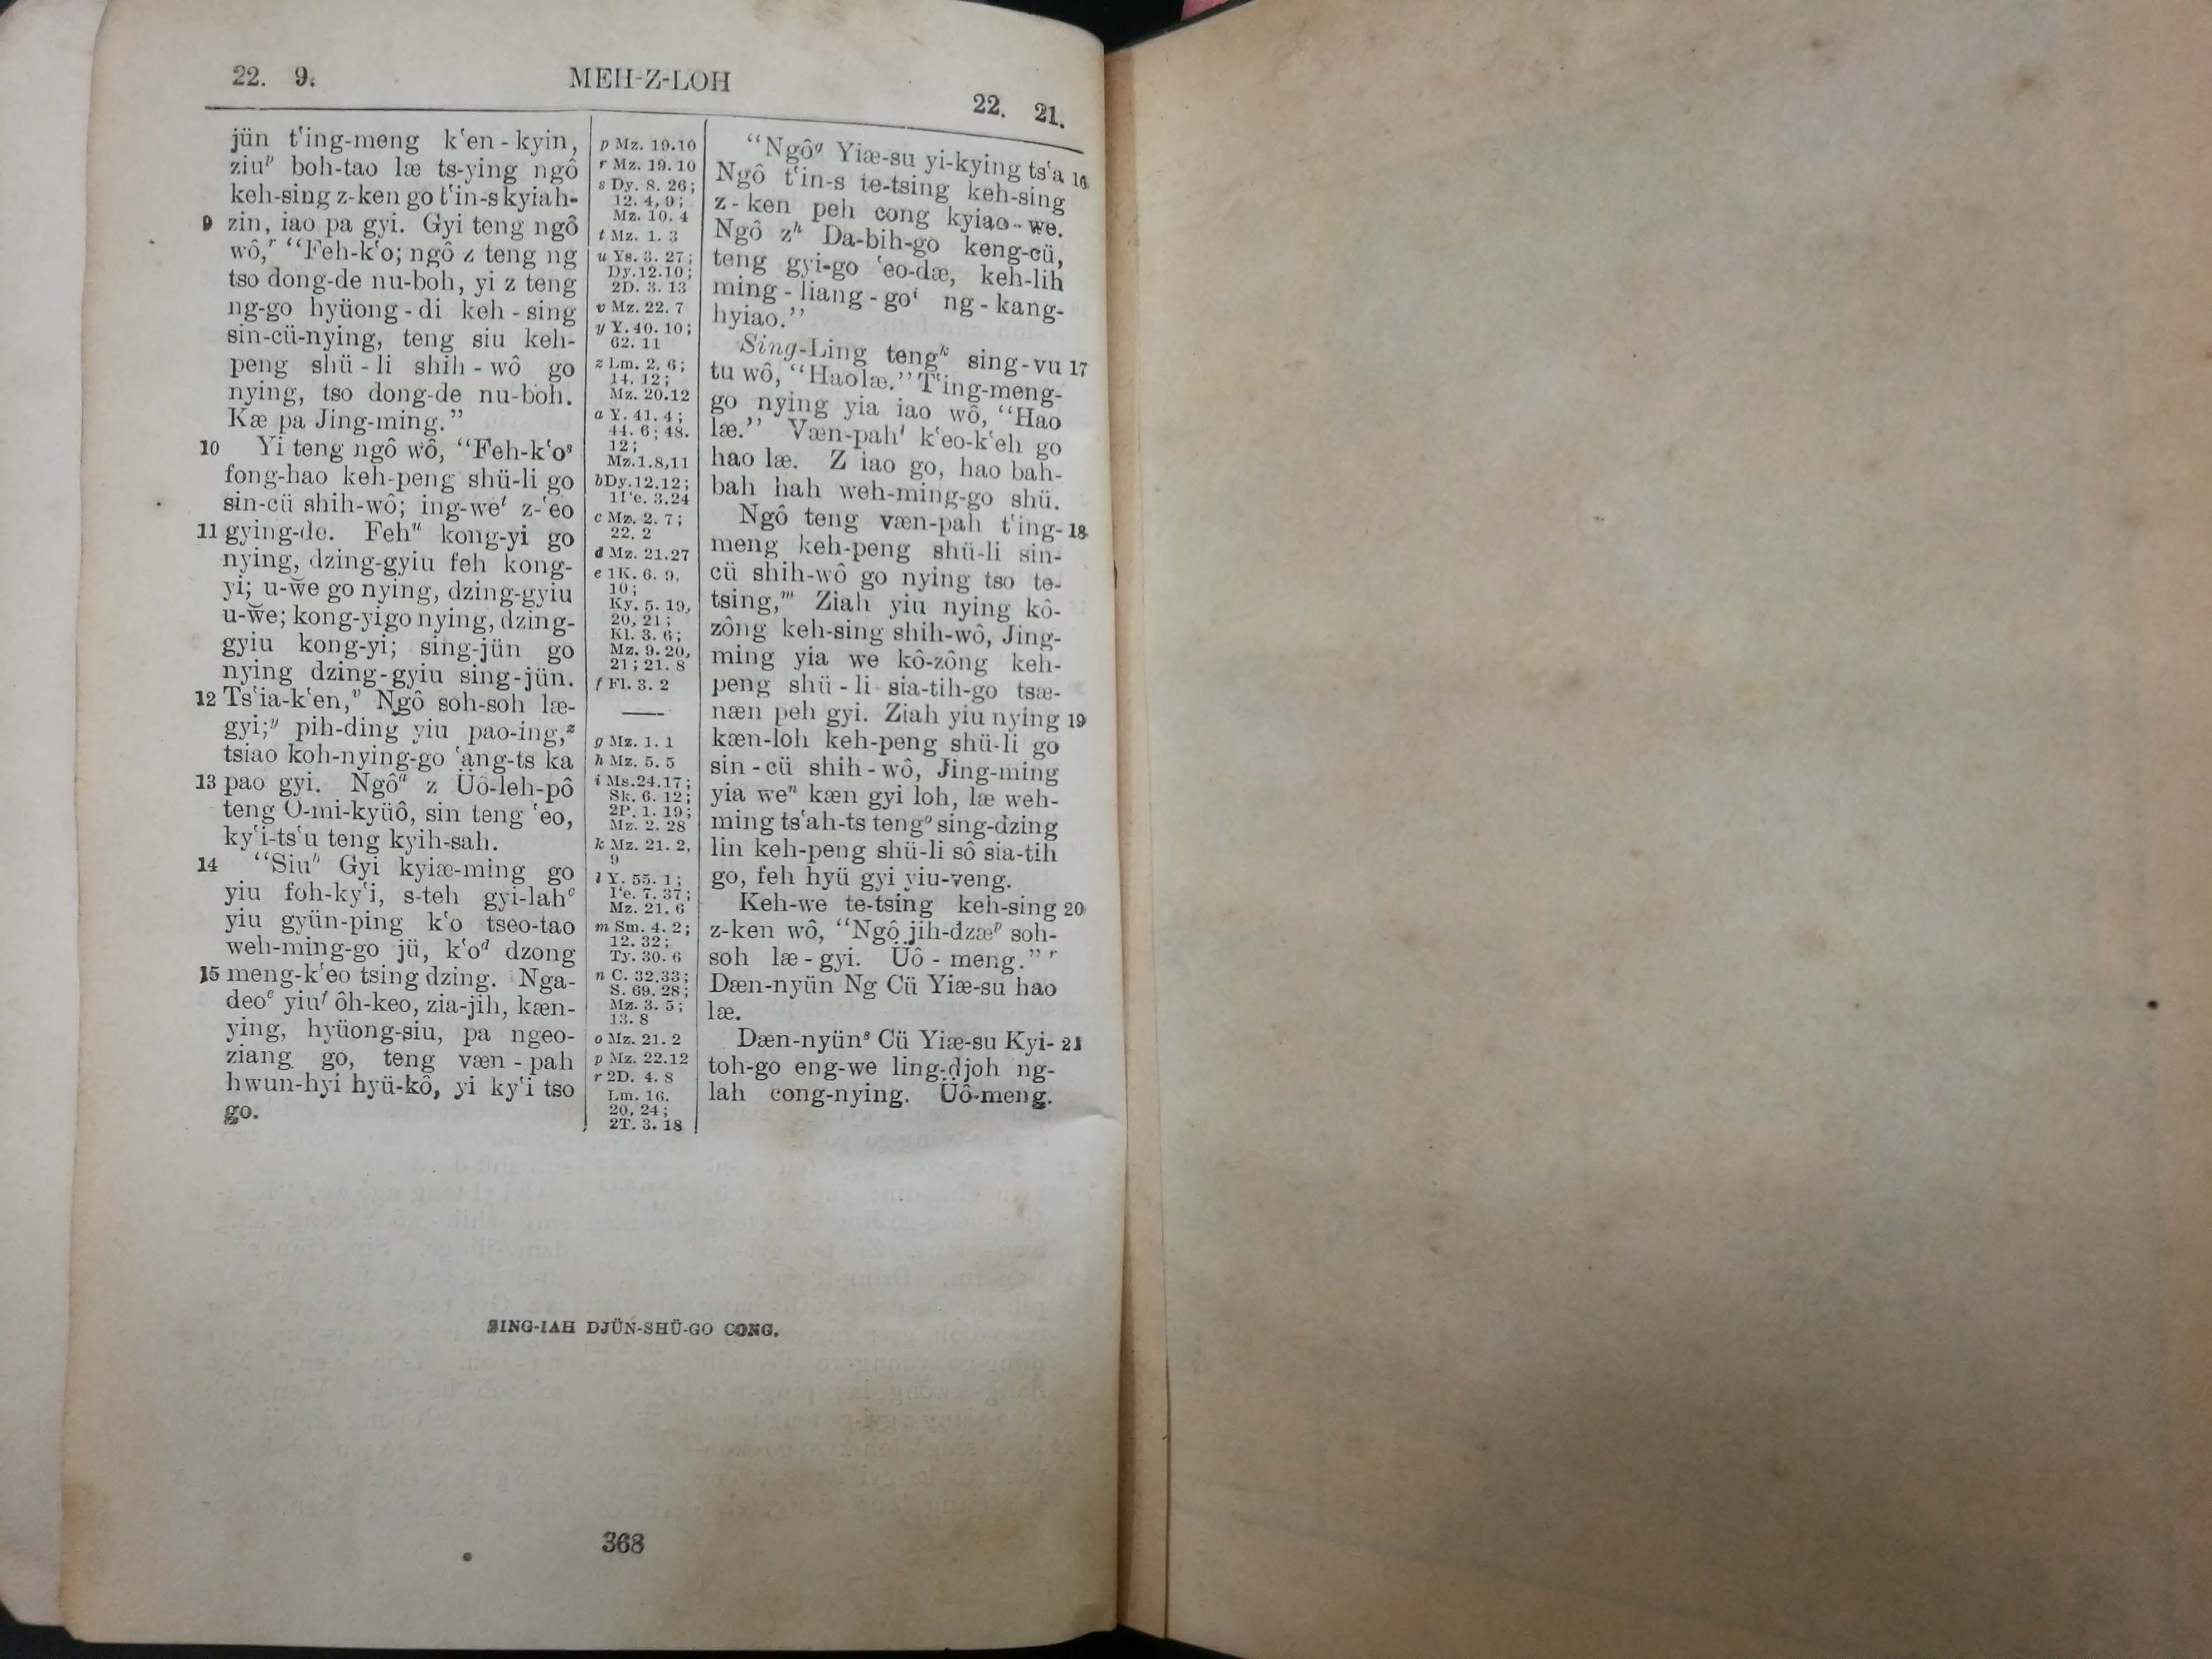 22. 9.
MEH-Z-LOH
22. 21.
jün t‘ing-meng k‘en-kyin,
ziuᵖ boh-tao læ ts-ying ngô
keh-sing z-ken go t‘in-s kyiah-
9 zin, iao pa gyi. Gyi teng ngô
wô,ʳ “Feh-k‘o; ngô z teng ng
tso dong-de nu-boh, yi z teng
ng-go hyüong-di keh-sing
sin-cü-nying, teng siu keh-
peng shü-li shih-wô go
nying, tso dong-de nu-boh.
Kæ pa Jing-ming.”
10 Yi teng ngô wô, “Feh-k‘oˢ
fong-hao keh-peng shü-li go
sin-cü shih-wô; ing-weᵗ z-‘eo
11 gying-de. Fehᵘ kong-yi go
nying, dzing-gyiu feh kong-
yi; u-wĕ go nying, dzing-gyiu
u-wĕ; kong-yi go nying, dzing-
gyiu kong-yi; sing-jün go
nying dzing-gyiu sing-jün.
12 Ts‘ia-k‘en,ᵛ Ngô soh-soh læ-
gyi;ʸ pih-ding yiu pao-ing,ᶻ
tsiao koh-nying-go ‘ang-ts ka
13 pao gyi. Ngôᵃ z Üô-leh-pô
teng O-mi-kyüô, sin teng ‘eo,
ky‘i-ts‘u teng kyih-sah.
14 “Siuᵇ Gyi kyiæ-ming go
yiu foh-ky‘i, s-teh gyi-lahᶜ
yiu gyün-ping k‘o tseo-tao
weh-ming-go jü, k‘oᵈ dzong
15 meng-k‘eo tsing dzing. Nga-
deoᵉ yiuᶠ ôh-keo, zia-jih, kæn-
ying, hyüong-siu, pa ngeo-
ziang go, teng væn-pah
hwun-hyi hyü-kô, yi ky‘i tso
go.
p Mz. 19.10
r Mz. 19. 10
s Dy. 8. 26;
12. 4, 9;
Mz. 10. 4
t Mz. 1. 3
u Ys. 3. 27;
Dy.12.10;
2D. 3. 13
v Mz. 22. 7
y Y. 40. 10;
62. 11
z Lm. 2. 6;
14. 12;
Mz. 20.12
a Y. 41. 4;
44. 6; 48.
12;
Mz.1.8,11
b Dy.12.12;
1I‘e. 3.24
c Mz. 2. 7;
22. 2
d Mz. 21.27
e 1K. 6. 9,
10;
Ky. 5. 19,
20, 21;
Kl. 3. 6;
Mz. 9. 20,
21; 21. 8
f Fl. 3. 2
g Mz. 1. 1
h Mz. 5. 5
i Ms.24.17;
Sk. 6. 12;
2P. 1. 19;
Mz. 2. 28
k Mz. 21. 2,
9
l Y. 55. 1;
I‘e. 7. 37;
Mz. 21. 6
m Sm. 4. 2;
12. 32;
Ty. 30. 6
n C. 32.33;
S. 69. 28;
Mz. 3. 5;
13. 8
o Mz. 21. 2
p Mz. 22.12
r 2D. 4. 8
Lm. 16.
20, 24;
2T. 3. 18
“Ngôᵍ Yiæ-su yi-kying ts‘a 16
Ngô t‘in-s te-tsing keh-sing
z-ken peh cong kyiao-we.
Ngô zʰ Da-bih-go keng-cü,
teng gyi-go ‘eo-dæ, keh-lih
ming-liang-goⁱ ng-kang-
hyiao.”
Sing-Ling tengᵏ sing-vu 17
tu wô, “Hao læ.” T‘ing-meng-
go nying yia iao wô, “Hao
læ.” Væn-pahˡ k‘eo-k‘eh go
hao læ. Z iao go, hao bah-
bah hah weh-ming-go shü.
Ngô teng væn-pah t‘ing- 18
meng keh-peng shü-li sin-
cü shih-wô go nying tso te-
tsing,ᵐ Ziah yiu nying kô-
zông keh-sing shih-wô, Jing-
ming yia we kô-zông keh-
peng shü-li sia-tih-go tsæ-
næn peh gyi. Ziah yiu nying 19
kæn-loh keh-peng shü-li go
sin-cü shih-wô, Jing-ming
yia weⁿ kæn gyi loh, læ weh-
ming ts‘ah-ts tengᵒ sing-dzing
lin keh-peng shü-li sô sia-tih
go, feh hyü gyi yiu-veng.
Keh-we te-tsing keh-sing 20
z-ken wô, “Ngô jih-dzæᵖ soh-
soh læ-gyi. Üô-meng.” ʳ
Dæn-nyün Ng Cü Yiæ-su hao
læ.
Dæn-nyünˢ Cü Yiæ-su Kyi- 21
toh-go eng-we ling-djoh ng-
lah cong-nying. Üô-meng.
SING-IAH DJÜN-SHÜ-GO CONG.
368